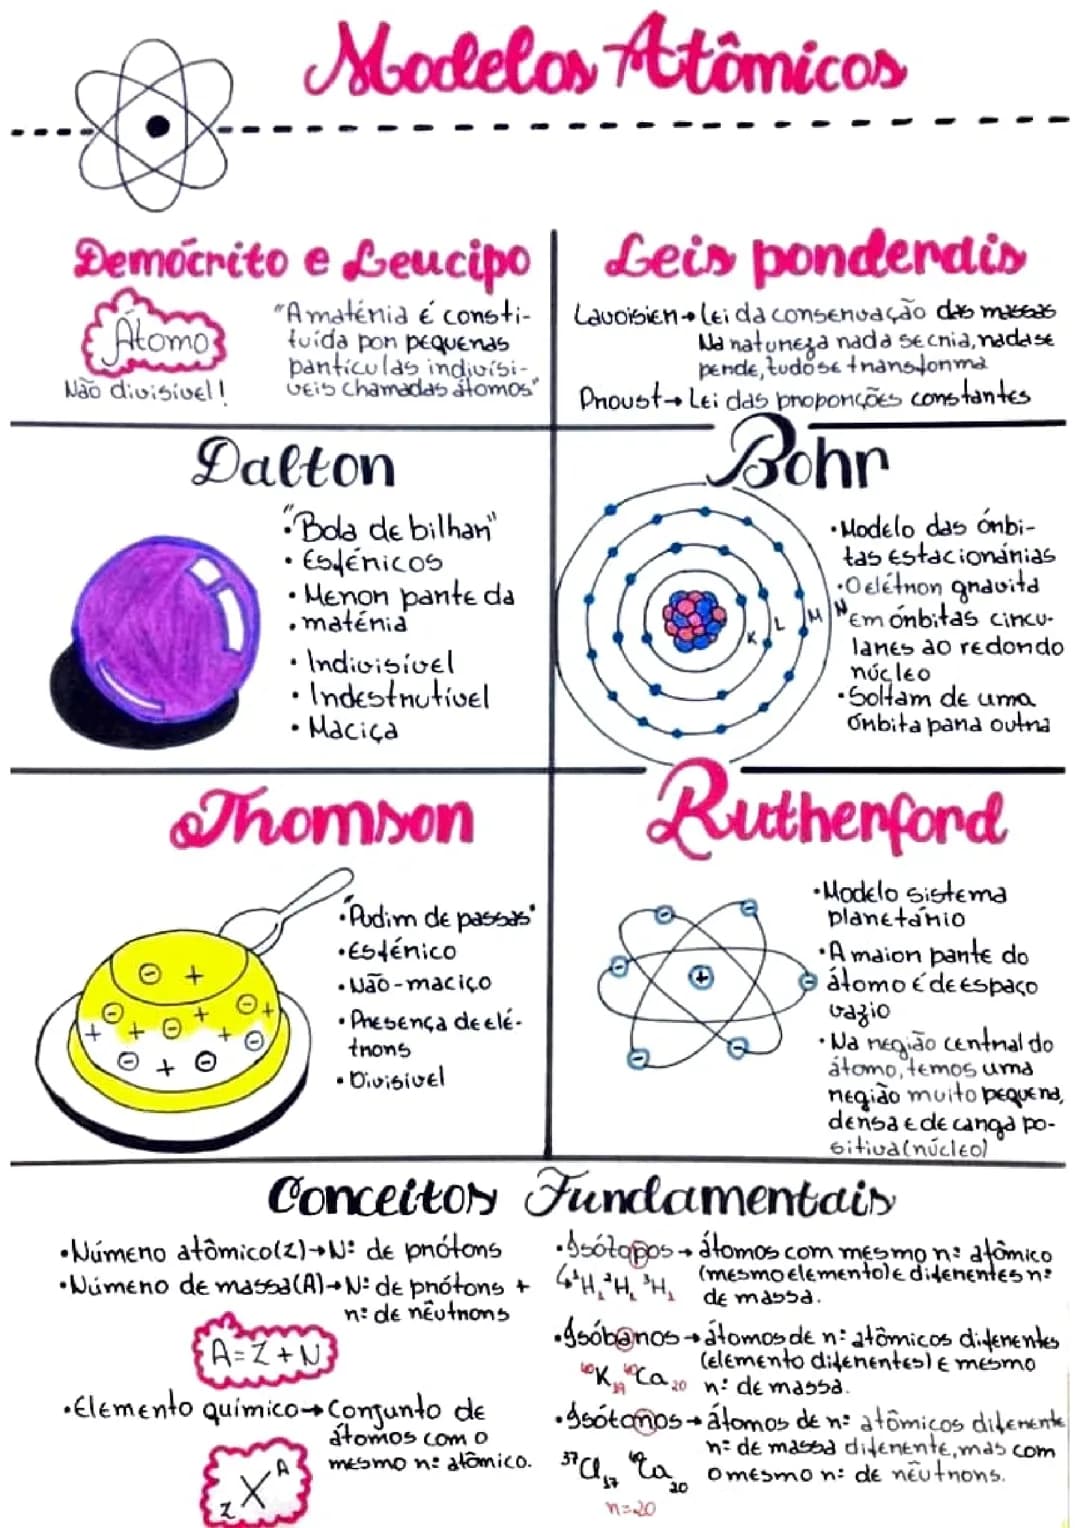 Modelos Atômicos
Demócrito e Leucipo
Átomo
Não divisível!
"A matéria é consti-
tuída por pequenas
partículas indivisí-
veis chamadas átomos"
Leis ponderais
Lavoisier→Lei da conservação das massas
Na natureza nada se cria, nada se
perde, tudo se transforma
Proust→Lei das proporções constantes
Dalton
•"Bola de bilhar"
• Esféricos
• Menor parte da
• matéria
• Indivisível
• Indestrutível
• Maciça
Bohr
K L M N
•Modelo das órbi-
tas estacionárias
•O elétron gravita
em órbitas circu-
lares ao redor do
núcleo
•Soltam de uma
órbita para outra
Thomson
•"Pudim de passas"
•Esférico
•Não-maciço
•Presença de elé-
trons
•Divisível
- +
- - +
+ + - + -
- + -
Rutherford
- -
- + -
- -
•Modelo sistema
planetário
•A maior parte do
átomo é de espaço
vazio
•Na região central do
átomo, temos uma
região muito pequena,
densa e de carga po-
sitiva (núcleo)
Conceitos Fundamentais
•Número atômico(Z)→Nº de prótons
•Número de massa(A)→Nº de prótons +
nº de nêutrons
A=Z+N
•Elemento químico→Conjunto de
átomos com o
mesmo nº atômico.
zXᴬ
•Isótopos→átomos com mesmo nº atômico
(mesmo elemento) e diferentes nº
de massa.
↳¹H₁ ²H₁ ³H₁
•Isóbaros→átomos de nº atômicos diferentes
(elemento diferentes) e mesmo
nº de massa.
⁴⁰K₁₉ ⁴⁰Ca₂₀
•Isótonos→átomos de nº atômicos diferente
nº de massa diferente, mas com
o mesmo nº de nêutrons.
³⁷Cl₁₇ ⁴⁰Ca₂₀
n=20